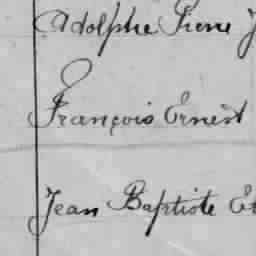 Adolphe Pierre J
François Ernest
Jean Baptiste Et